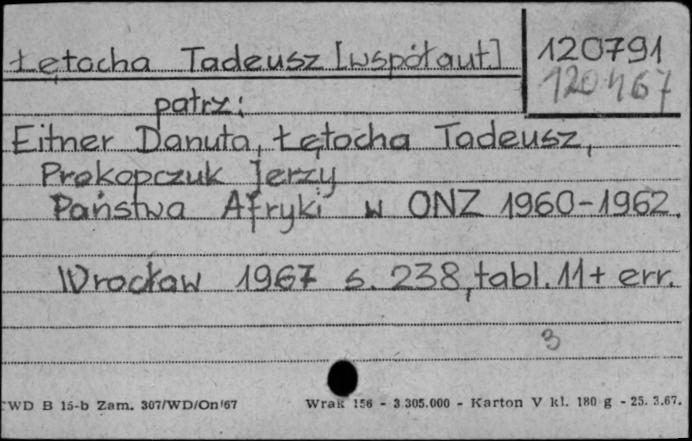 Łętocha Tadeusz [współaut]
120791
120467
patrz:
Eitner Danuta, Łętocha Tadeusz,
Prokopczuk Jerzy
Państwa Afryki w ONZ 1960-1962.
Wrocław 1967 s. 238, tabl. 11 + err.
3
CWD B 15-b Zam. 307/WD/On/67
Wrak 156 - 3.305.000 - Karton V kl. 180 g - 25. 3.67.